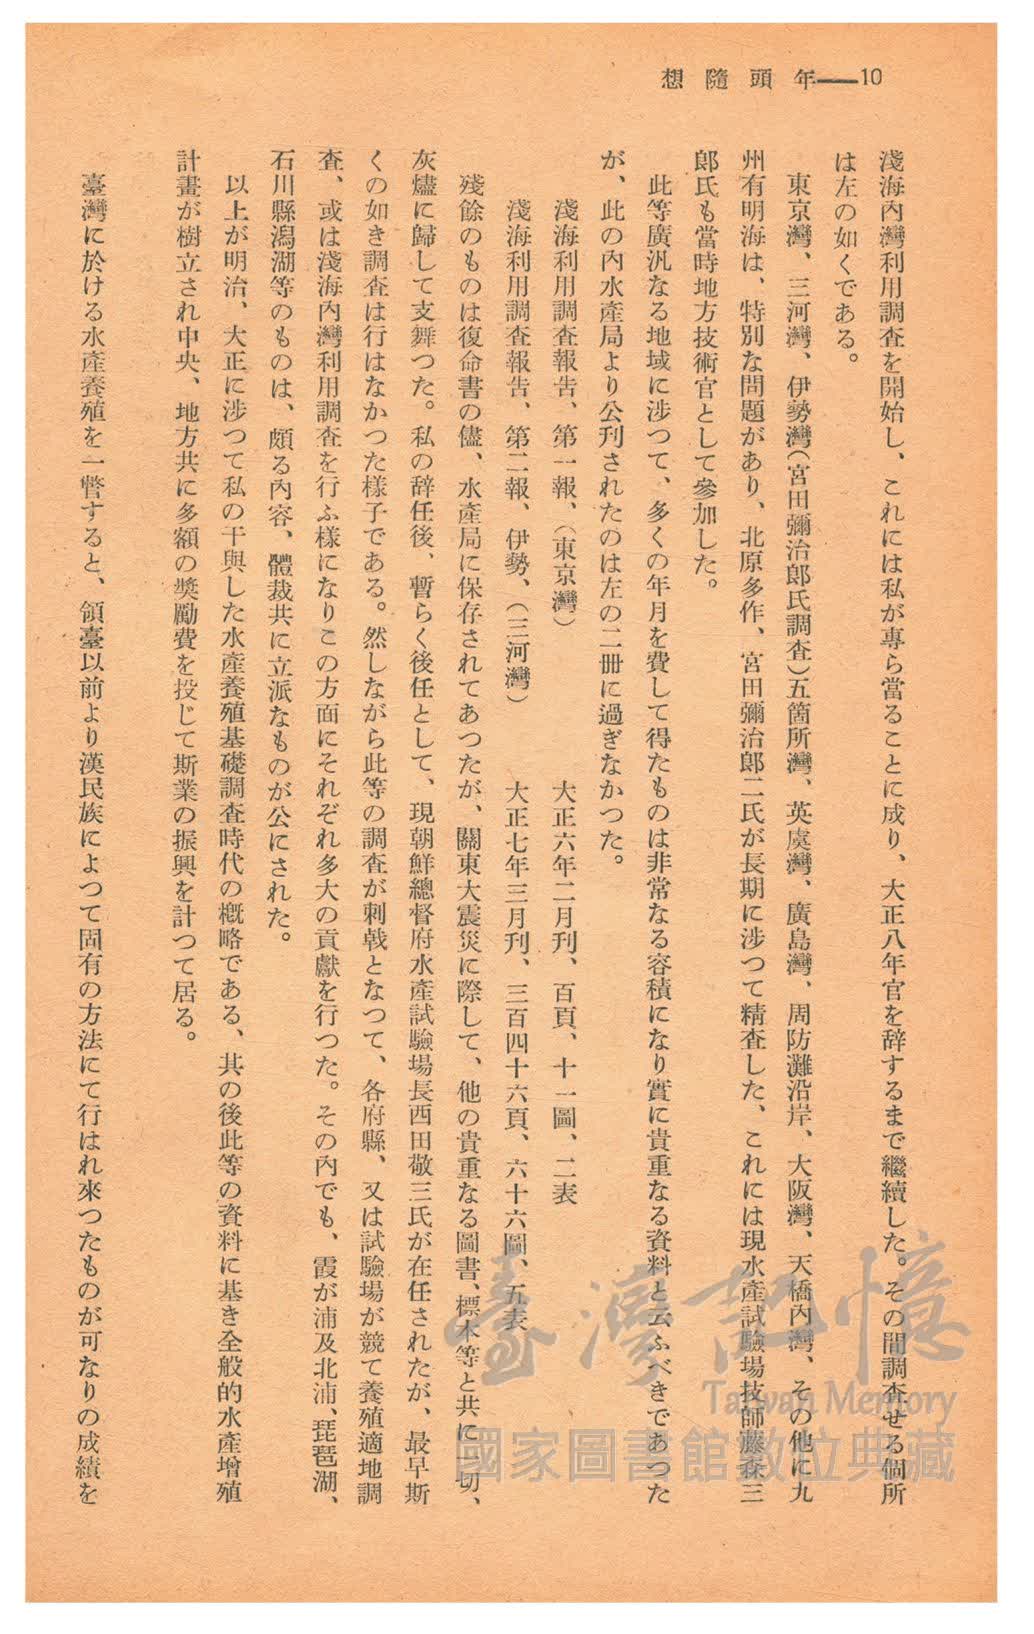 想隨頭年——10
淺海內灣利用調査を開始し、これには私が專ら當ることに成り、大正八年官を辞するまで繼續した。その間調査せる個所
は左の如くである。
東京灣、三河灣、伊勢灣(宮田彌治郎氏調査)五箇所灣、英虞灣、廣島灣、周防灘沿岸、大阪灣、天橋內灣、その他に九
州有明海は、特別な問題があり、北原多作、宮田彌治郎二氏が長期に涉つて精査した、これには現水產試驗場技師藤森三
郎氏も當時地方技術官として參加した。
此等廣汎なる地域に涉つて、多くの年月を費して得たものは非常なる容積になり實に貴重なる資料と云ふべきであつた
が、此の內水產局より公刊されたのは左の二冊に過ぎなかつた。
淺海利用調査報告、第一報、(東京灣)　大正六年二月刊、百頁、十一圖、二表
淺海利用調査報告、第二報、伊勢、(三河灣)　大正七年三月刊、三百四十六頁、六十六圖、五表
殘餘のものは復命書の儘、水產局に保存されてあつたが、關東大震災に際して、他の貴重なる圖書、標本等と共に一切、
灰燼に歸して支舞つた。私の辞任後、暫らく後任として、現朝鮮總督府水產試驗場長西田敬三氏が在任されたが、最早斯
くの如き調査は行はなかつた樣子である。然しながら此等の調査が刺戟となつて、各府縣、又は試驗場が競て養殖適地調
査、或は淺海內灣利用調査を行ふ樣になりこの方面にそれぞれ多大の貢獻を行つた。その內でも、霞が浦及北浦、琵琶湖、
石川縣潟湖等のものは、頗る內容、體裁共に立派なものが公にされた。
以上が明治、大正に涉つて私の干與した水產養殖基礎調査時代の概略である、其の後此等の資料に基き全般的水產增殖
計畫が樹立され中央、地方共に多額の奬勵費を投じて斯業の振興を計つて居る。
臺灣に於ける水產養殖を一瞥すると、領臺以前より漢民族によつて固有の方法にて行はれ來つたものが可なりの成績を
臺灣記憶
Taiwan Memory
國家圖書館數位典藏